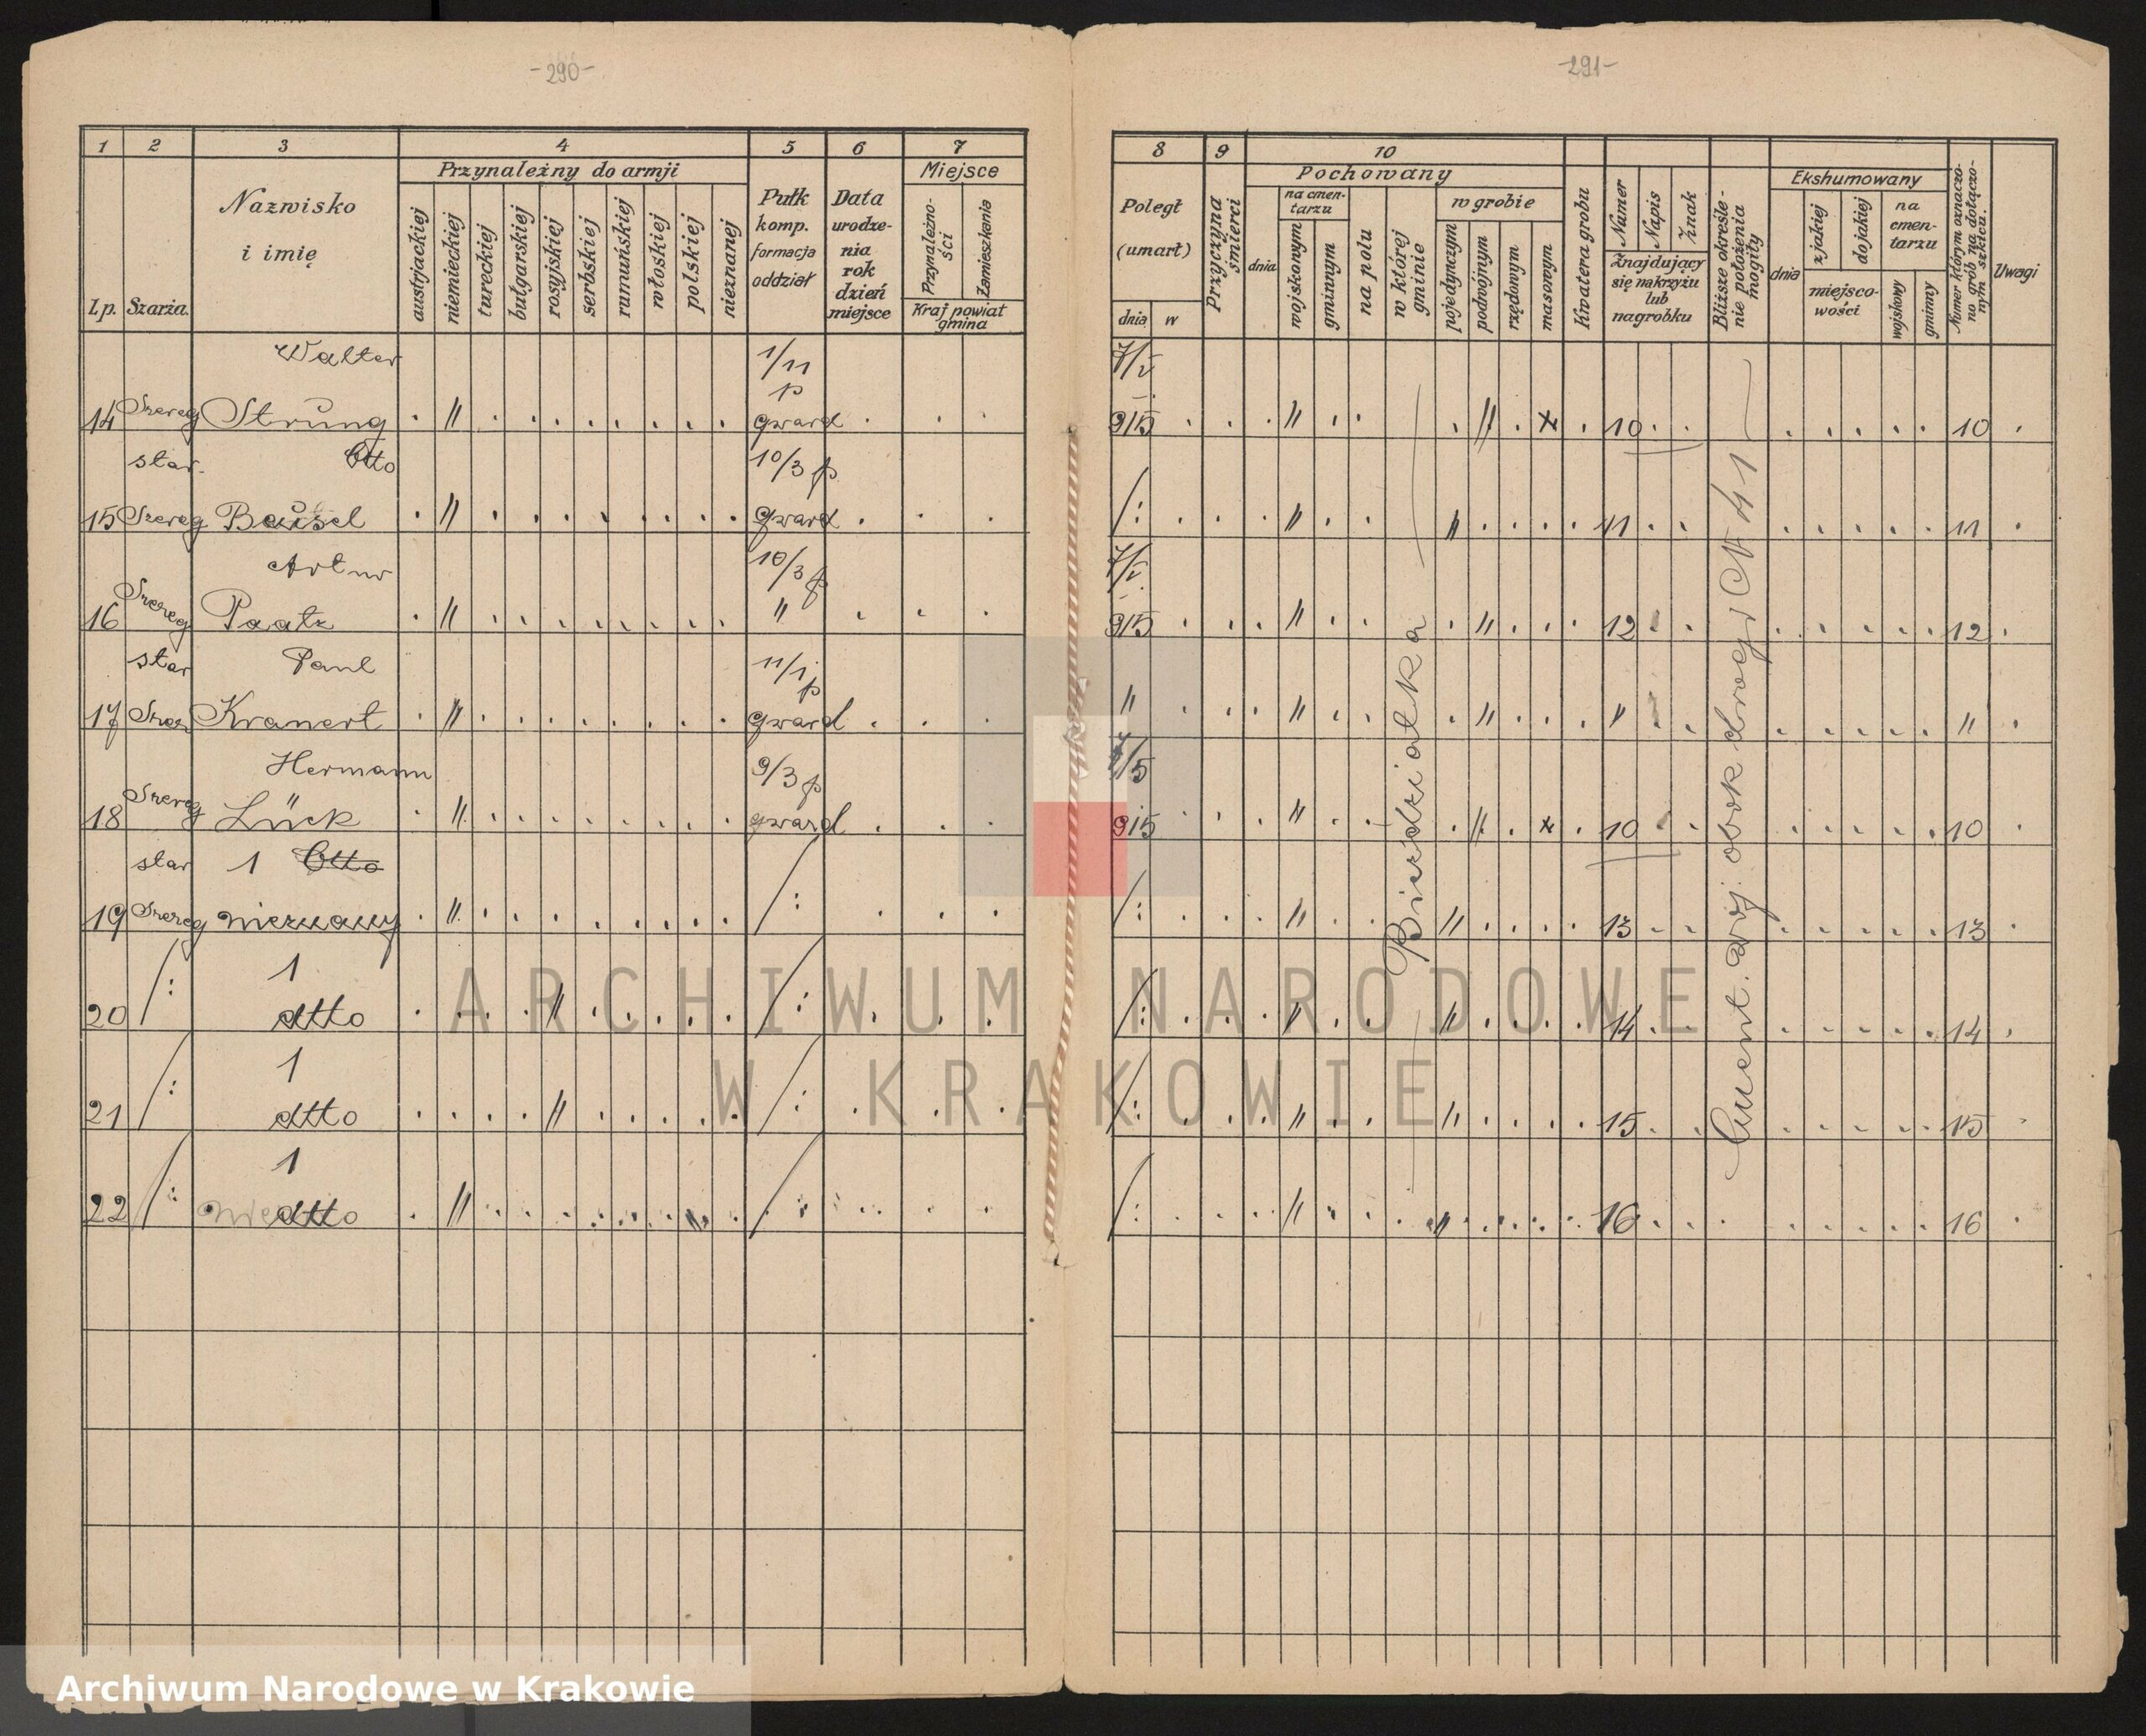 -290-
1 2 3 4 5 6 7
Lp. Szarża. Nazwisko i imię
Przynależny do armji
austrjackiej niemieckiej tureckiej bułgarskiej rosyjskiej serbskiej rumuńskiej włoskiej polskiej nieznanej
Pułk komp. formacja oddział
Data urodzenia rok dzień miejsce
Miejsce
Przynależności Zamieszkania
Kraj powiat gmina
Walter 1/11 p
14 Szereg Strüng " gward
star. Otto 10/3 p
15 Szereg Beüsel " gward
Artur 10/3 p
16 Szereg Paatz " "
star Paul 11/1 p
17 Szer Kranert " gward
Hermann 9/3 p
18 Szereg Lück " gward
star 1 Otto
19 Szereg nieznany " /:
1
20 /: dtto " /:
1
21 /: dtto " /:
1
22 /: dtto " /:
-291-
8 9 10
Poległ (umarł)
dnia w
Przyczyna śmierci
Pochowany
dnia
na cmentarzu
wojskowym gminnym
na polu
w której gminie
w grobie
pojedynczym podwójnym rzędowym masowym
Kwatera grobu
Numer Napis Znak
Znajdujący się na krzyżu lub nagrobku
Bliższe określenie położenia mogiły
Ekshumowany
dnia
z jakiej do jakiej
miejscowości
na cmentarzu
wojskowy gminny
Numer którym oznaczono grób na dołączonym szkicu.
Uwagi
7/V 915 " " x 10 10
/: " " 11 11
7/V 915 " " 12 12
" " " " "
7/5 915 " " x 10 10
/: " " 13 13
/: " " 14 14
/: " " 15 15
/: " " 16 16
Bieździatka
Cment. woj. obok drogi N 41
ARCHIWUM NARODOWE
W KRAKOWIE
Archiwum Narodowe w Krakowie